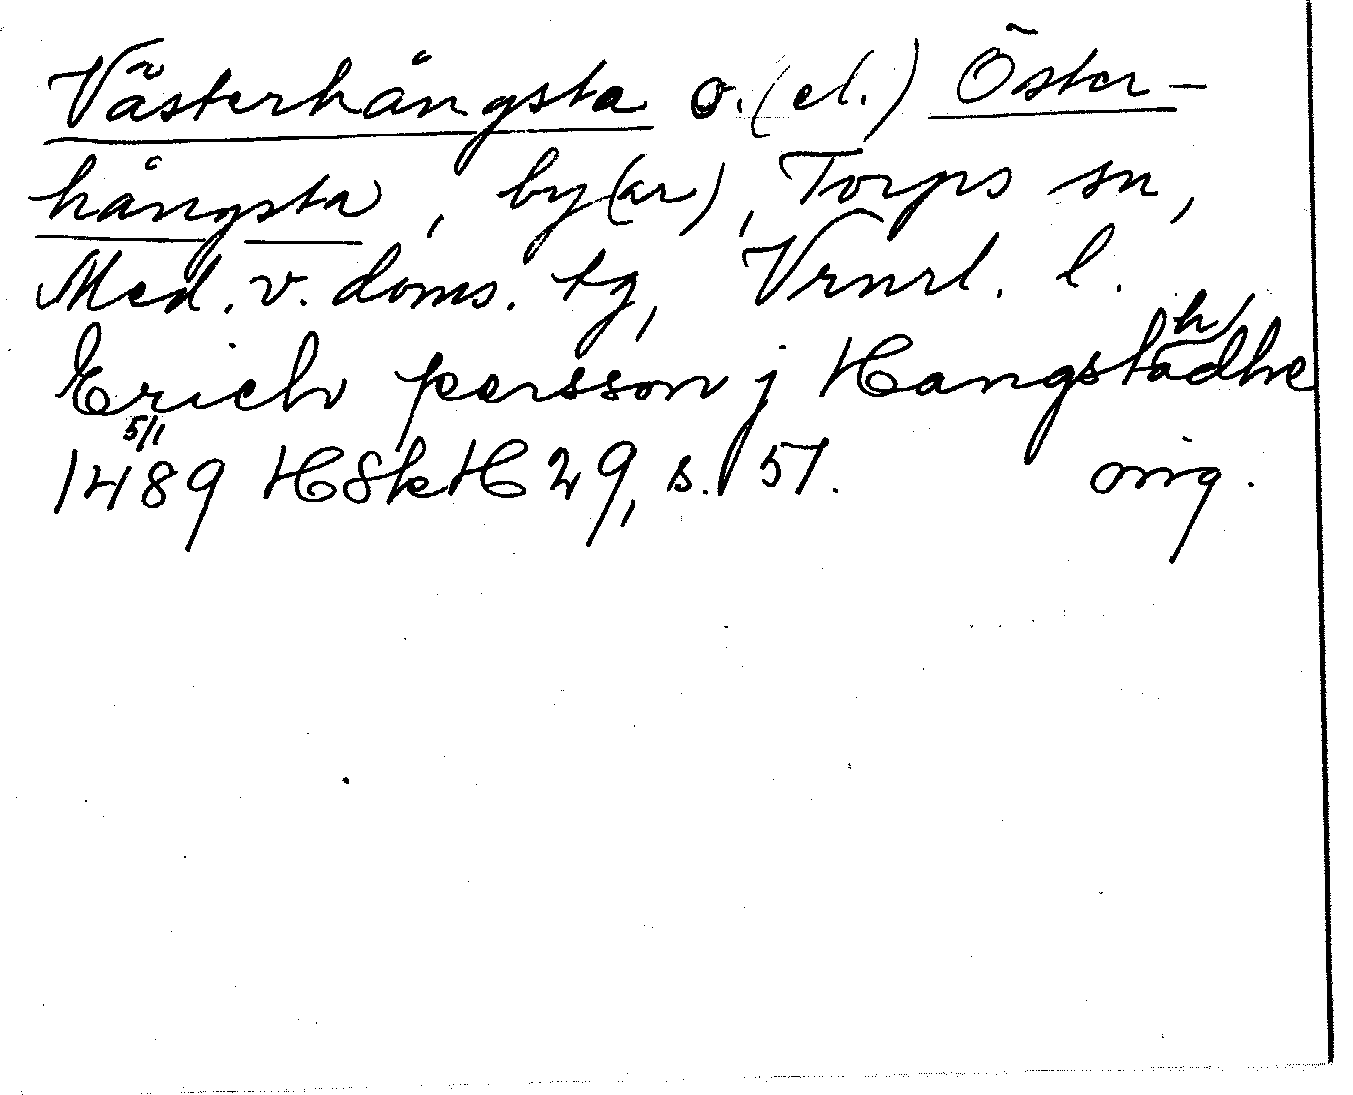 Västerhångsta o. (el.) Öster-
hångsta, by(ar), Torps sn,
Med. v. doms. tg, Vrnrl. l.
Erich persson j Hangstadhe
5/1 h/
1489 HSkH 29, s. 57. orig.